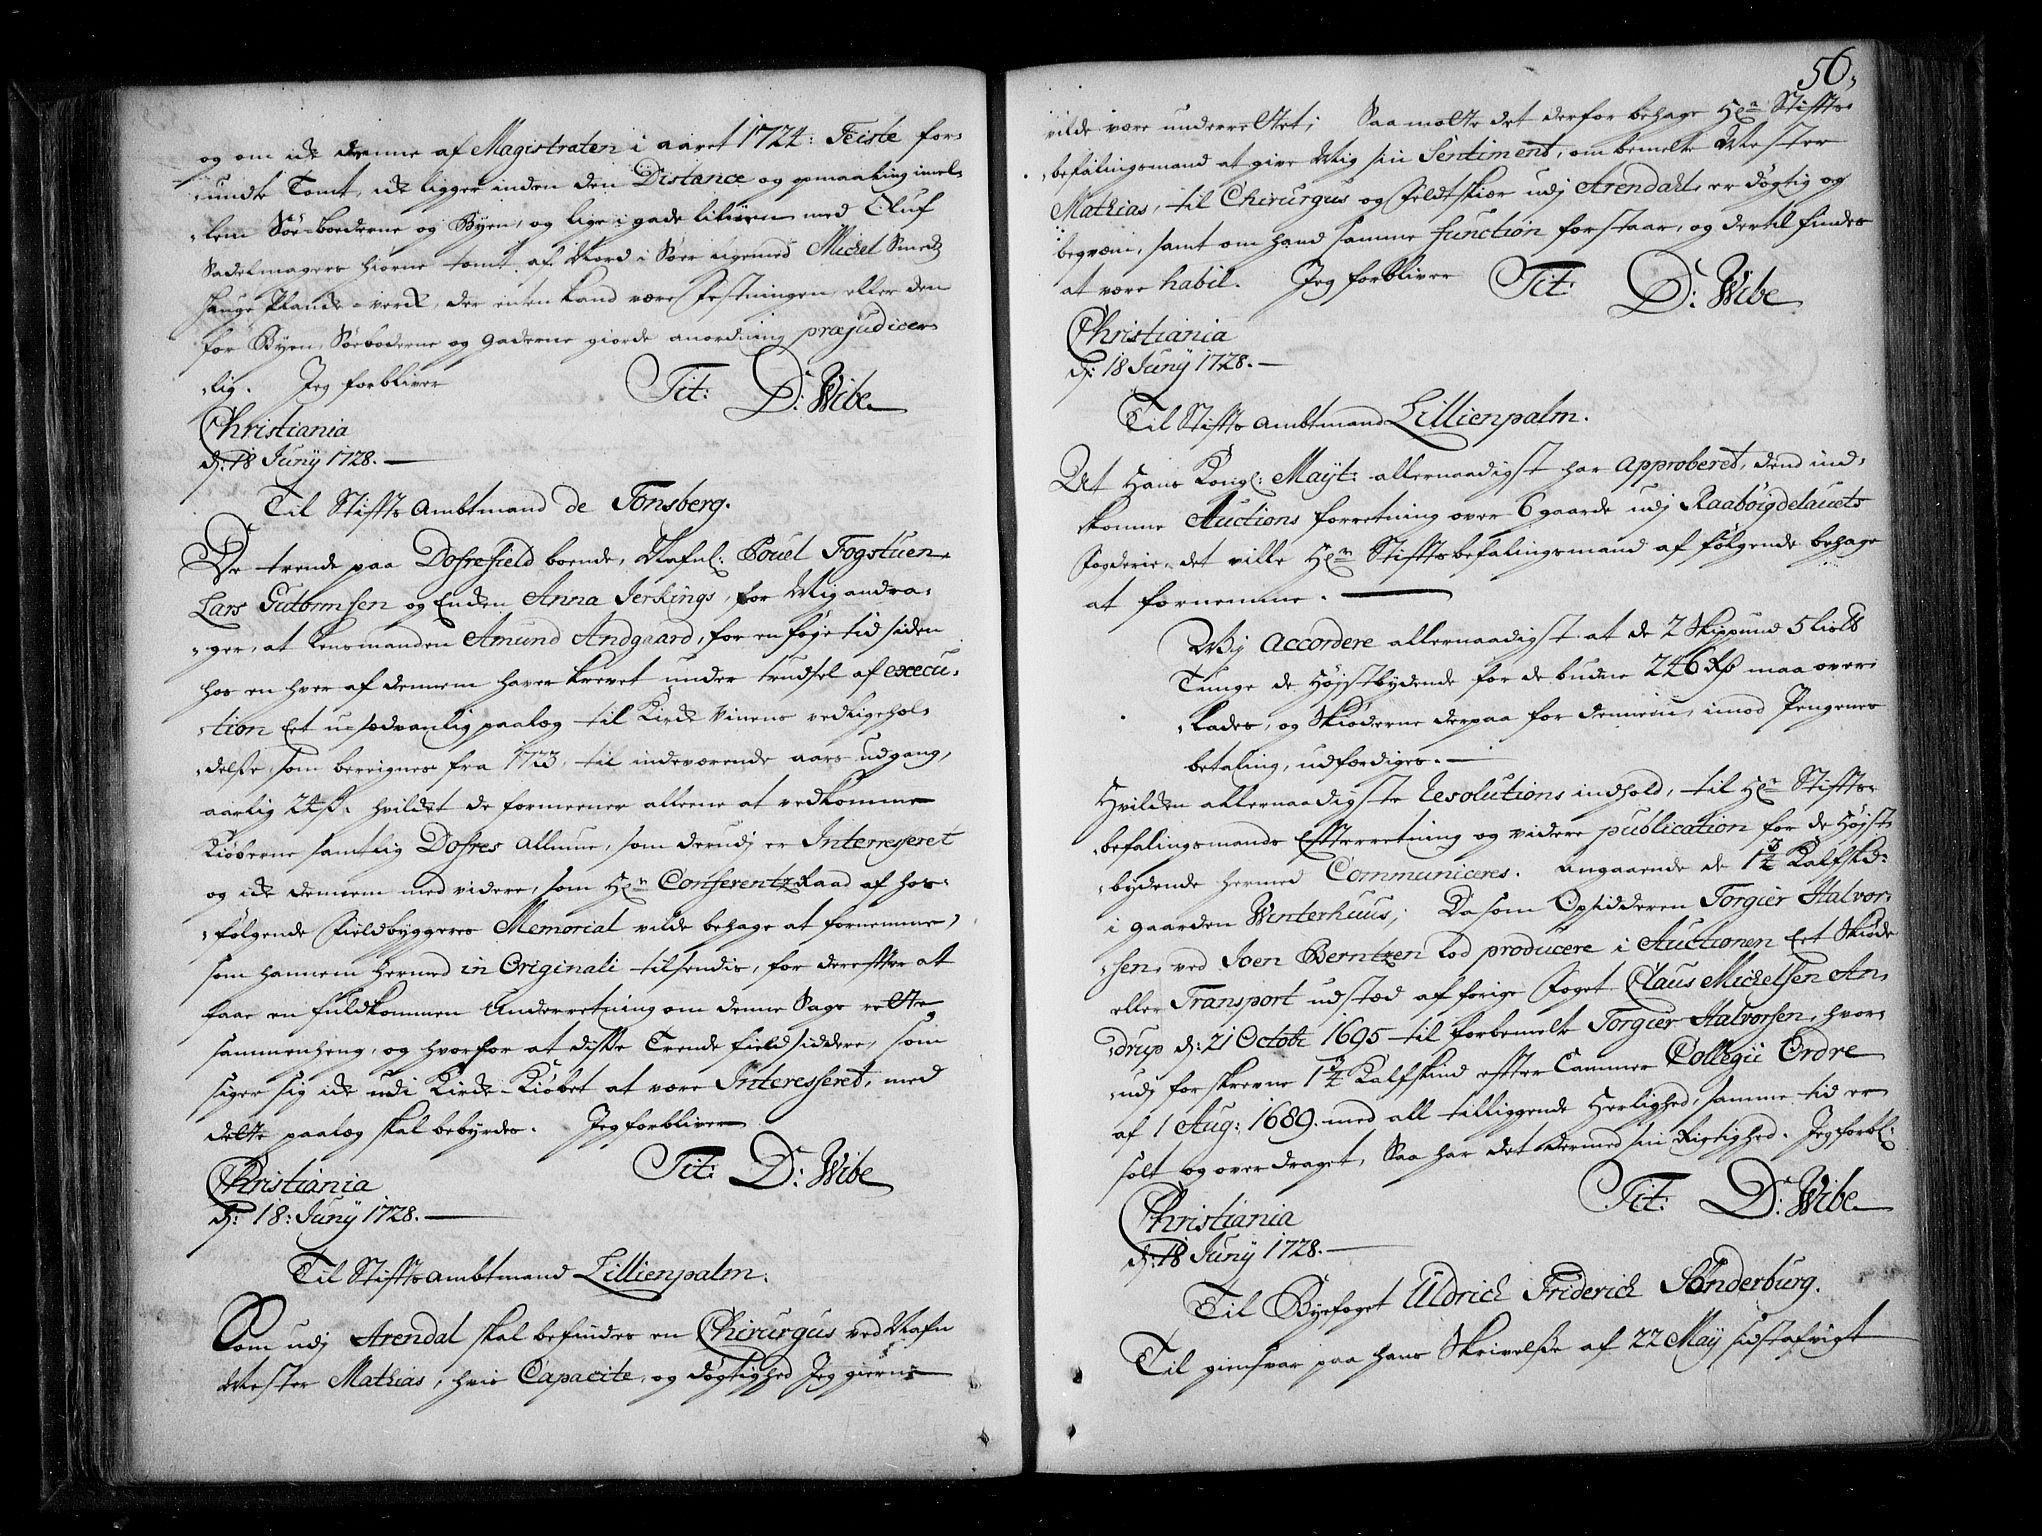 og om ick denne af Magistraten i aaret 1724: Feiste for-
-undte Tomt, ick ligger inden den Distance og opmaaling imel-
-lem Söe-boederne og Byen, og lige i gade linien med Oluf
Sadelmagers hiørne tomt af Nord i Søer ligemed Michel Smeds
hauge Planck-verck, der enten kand være Festningen eller den
for Byen, Søeboderne og gaderne giorde anordning præjudicer-
-lig. Jeg forbliver Tit: D: Wibe
Christiania
d: 18 Juny 1728.
Til Stiffts Ambtmand de Tonsberg.
De trende paa Dofrefield boende, Nafnl: Pouel Fogstuen
Lars Gutormsen og Encken Anna Jerkings, for Mig andra-
-ger, at Lensmanden Amund Andgaard, for en føje tid siden
hos en hver af dennem haver krevet under trudsel af execu-
-tion Eet usædvanlig paalæg til Kircke Vinens vedligehol-
-delse, som bereignes fra 1723 til indeværende aars udgang,
aarlig 24 s. hvilcket de formeener alleene at vedkomme
Kiøberne samtlig Dofres Allmue, som derudj er Interresseret
og ick dennem med videre, som Hr Conferentz Raad af hos-
-følgende Fieldbyggeres Memorial vilde behage at fornemme,
som hannem hermed in Originali tilsendis, for derefter at
faae en fuldkommen Underretning om denne Sags rette
sammenheng, og hvorfor at disse Trende fieldsiddere, som
siger sig ick udi Kircke-Kiøbet at være Interesseret, med
dette paalæg skal bebyrdes. Jeg forbliver
Tit: D: Wibe
Christiania
d: 18: Juny 1728.
Til Stiffts Ambtmand Lillienpalm.
Som udj Arendal skal befindes en Chirurgus ved Nafn
Mester Mathias, hvis Capacite, og døgtighed Jeg gierne
56,
vilde være underrettet; Saa møtte det derfor behage Hrn Stiffts-
-befalingsmand at give Mig sin Sentiment, om bemelte Mester
Mathias, til Chirurgus og Feldtskiær udj Arendahl, er døgtig og
begvem, samt om hand samme function forstaar, og dertil findes
at være habil. Jeg forbliver Tit: D: Wibe
Christiania
d: 18 Juny 1728.
Til Stiffts Ambtmand Lillienpalm.
At Hans Kongl: Mayt: allernaadigst har approberet, dend ind-
komne Auctions forretning over 6 gaarde udj Raabøigdelauets
Fogderie, det ville Hrn Stifftsbefalingsmand af følgende behage
at fornemme.
Wij accordere allernaadigst at de 2 Skippund 5 Lis℔
Tunge de Højstbydende for de budne 246 Rd maa over-
-lades, og Skiøderne derpaa for dennem, imod Pengenes
betaling, udfærdiges.
Hvilcken allernaadigste Resolutions indhold, til Hrn Stiffts-
-befalingsmands Effterretning og videre publication for de Højst-
-bydende hermed Communiceres. Angaaende de 1 3/4 Kalfskd:
i gaarden Winterhuus, Da som Opsidderen Torgier Halvor-
-sen, ved Joen Berntzen lod producere i Auctionen Eet Skiøde
eller Transport udstæd af forige Foget Claus Michelsen An-
-drup d: 21 Octobr 1695 til forbemelte Torgier Halvorsen, hvor-
-udj forskrevne 1 3/4 Kalfskind effter Cammer Collegii Ordre
af 1 Aug: 1689. med all tilliggende Herlighed, samme tid er
solt og overdraget, Saa har det dermed sin Rigtighed. Jeg forbl:
Tit: D: Wibe
Christiania
d: 18 Juny 1728.
Til Byefoget Uldrich Friderich Sönderburg.
Til giensvar paa hans Skrivelse af 22 May sidstafvigt